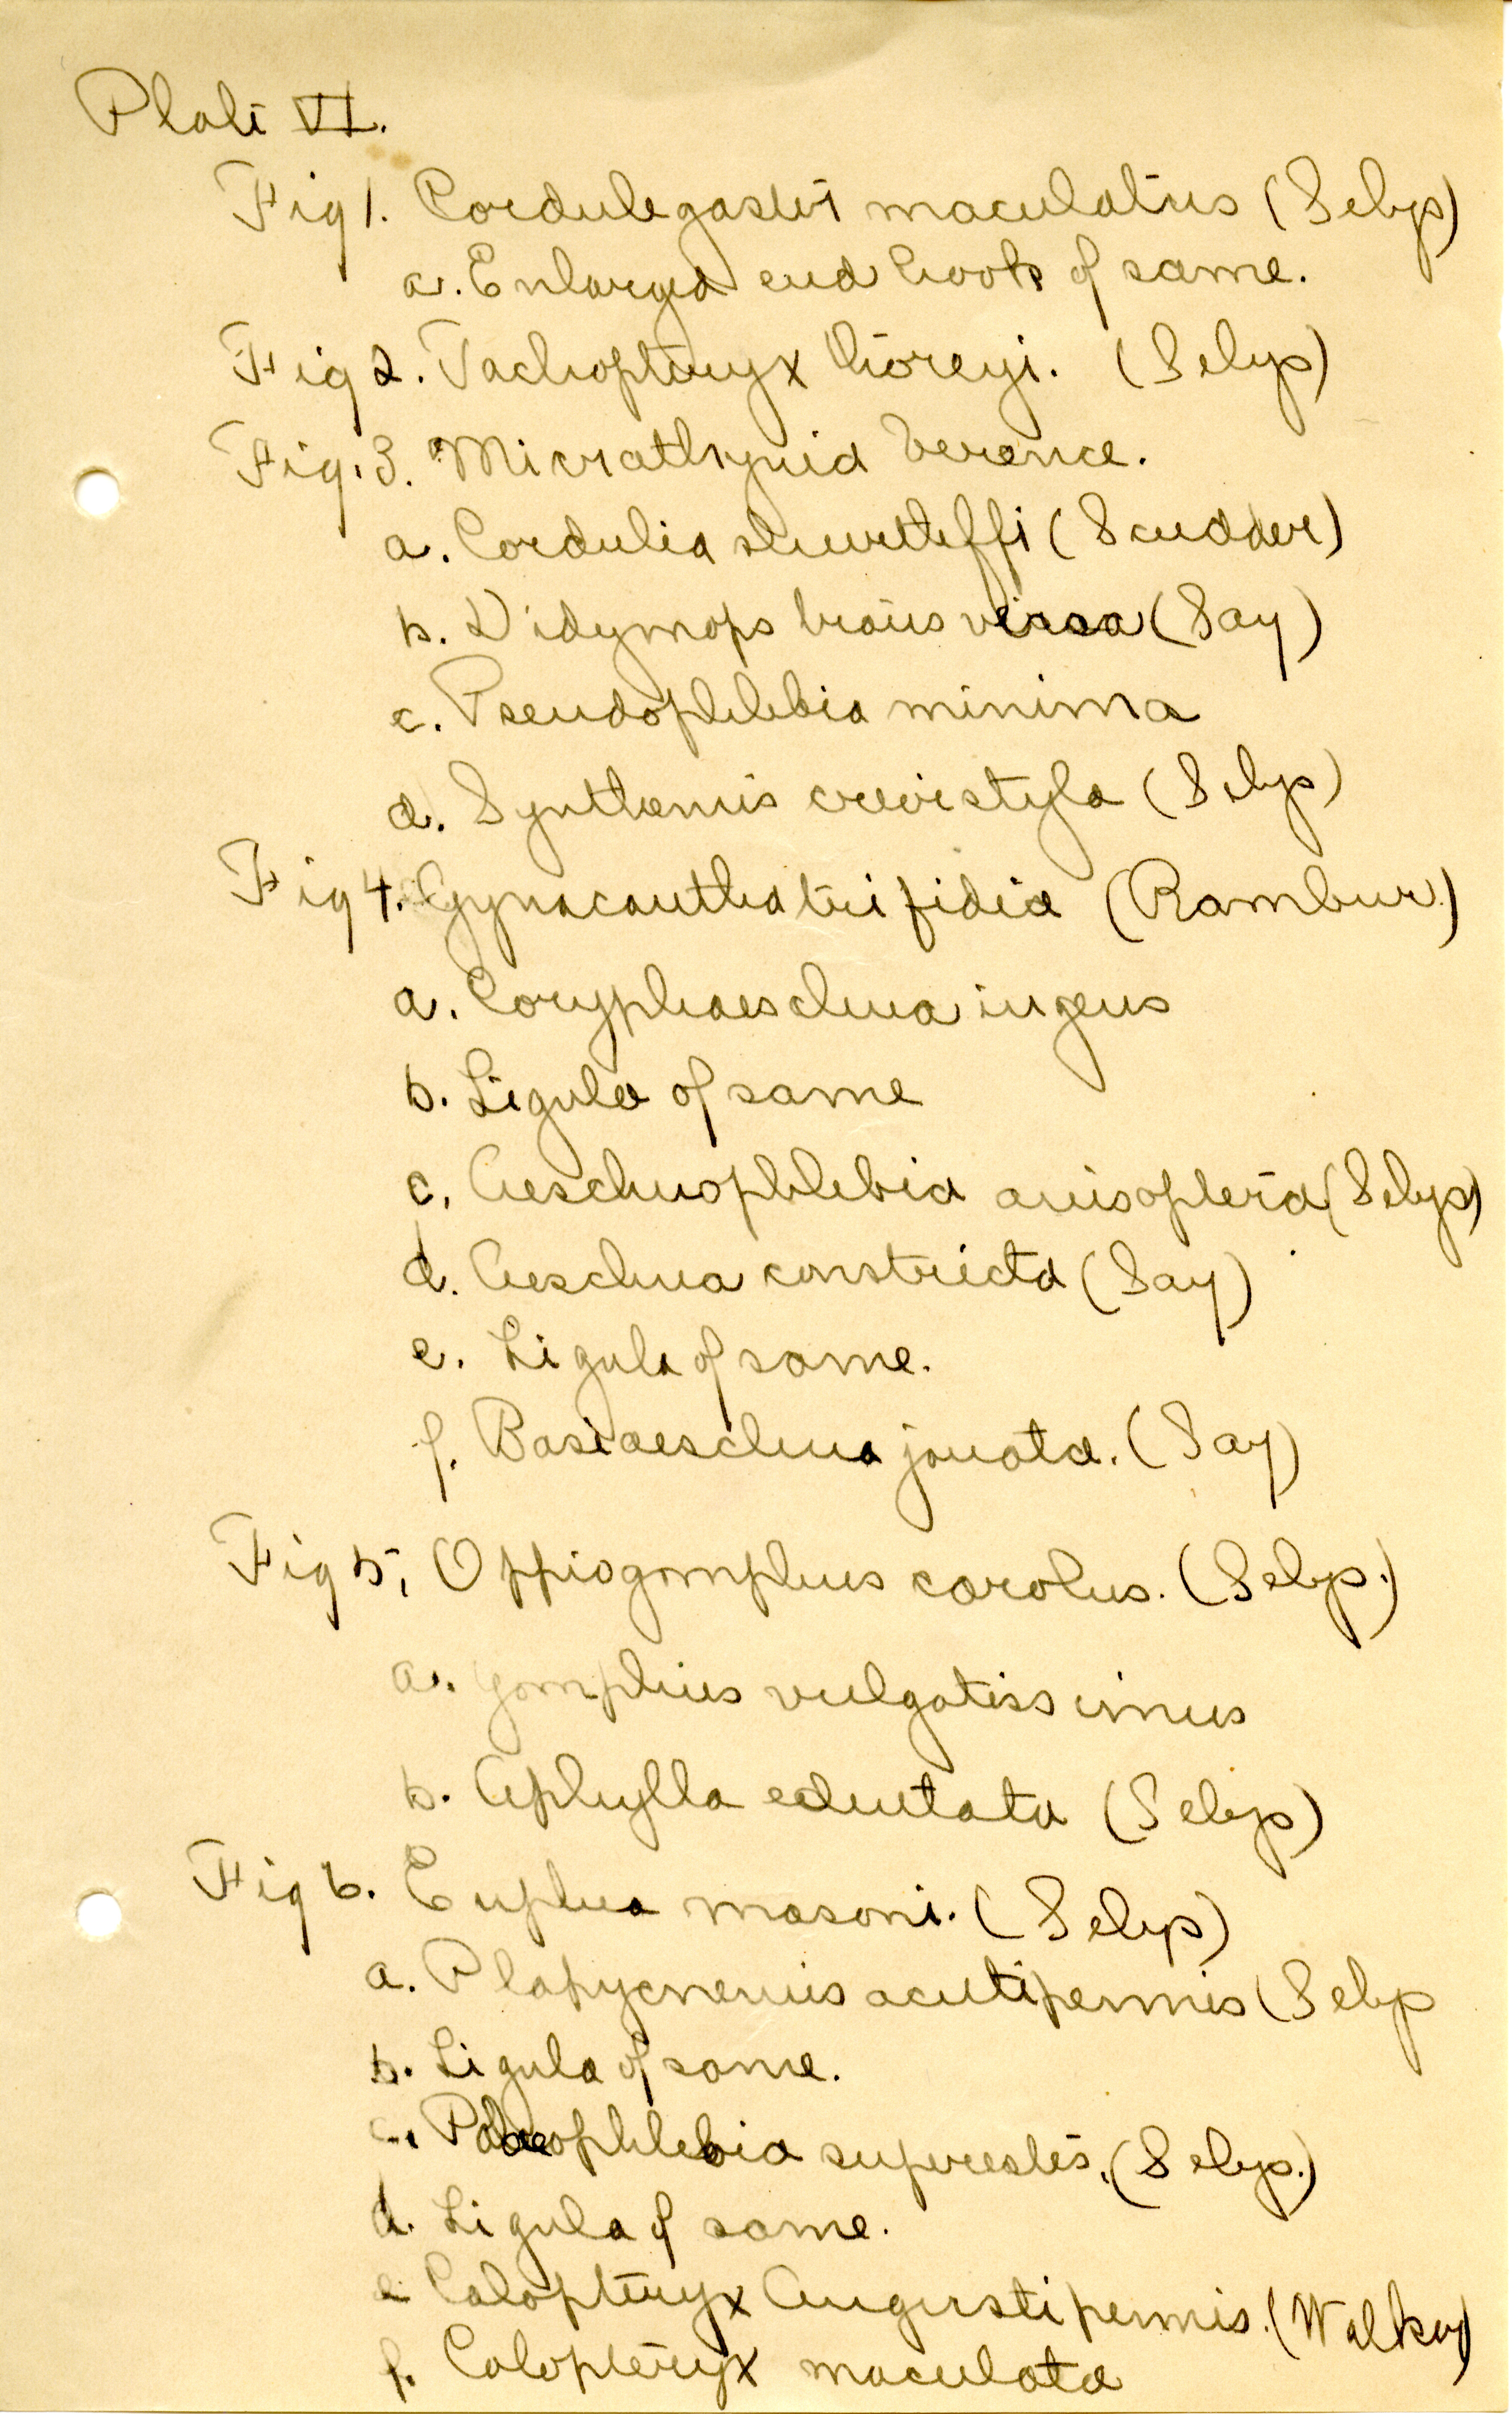 Plate VI.
Fig 1. Cordulegaster maculatus (Selys)
a. Enlarged end hook of same.
Fig 2. Tachopteryx thoreyi. (Selys)
Fig. 3. Micrathyria berenice.
a. Cordulia shurtleffi (Scudder)
b. Didymops transversa (Say)
c. Pseudophlebia minima
d. Synthemis (Selys)
Fig 4. Gynacantha trifidia (Rambur.)
a. Coryphaeschna ingens
b. Ligula of same
c. Aeschnophlebia anisoptera (Selys)
d. Aeschna constricta (Say)
e. Ligula of same.
f. Basiaeschna janata. (Say)
Fig 5, Ophiogomphus carolus. (Selys.)
a. Gomphus vulgatissimus
b. Aphylla edentata (Selys)
Fig 6. Euphea masoni. (Selys)
a. Platycnemis acutipennis (Selys
b. Ligula of same.
c. Palaeophlebia superstes. (Selys.)
d. Ligula of same.
e Calopteryx Angustipennis. (Walker)
f. Calopteryx maculata